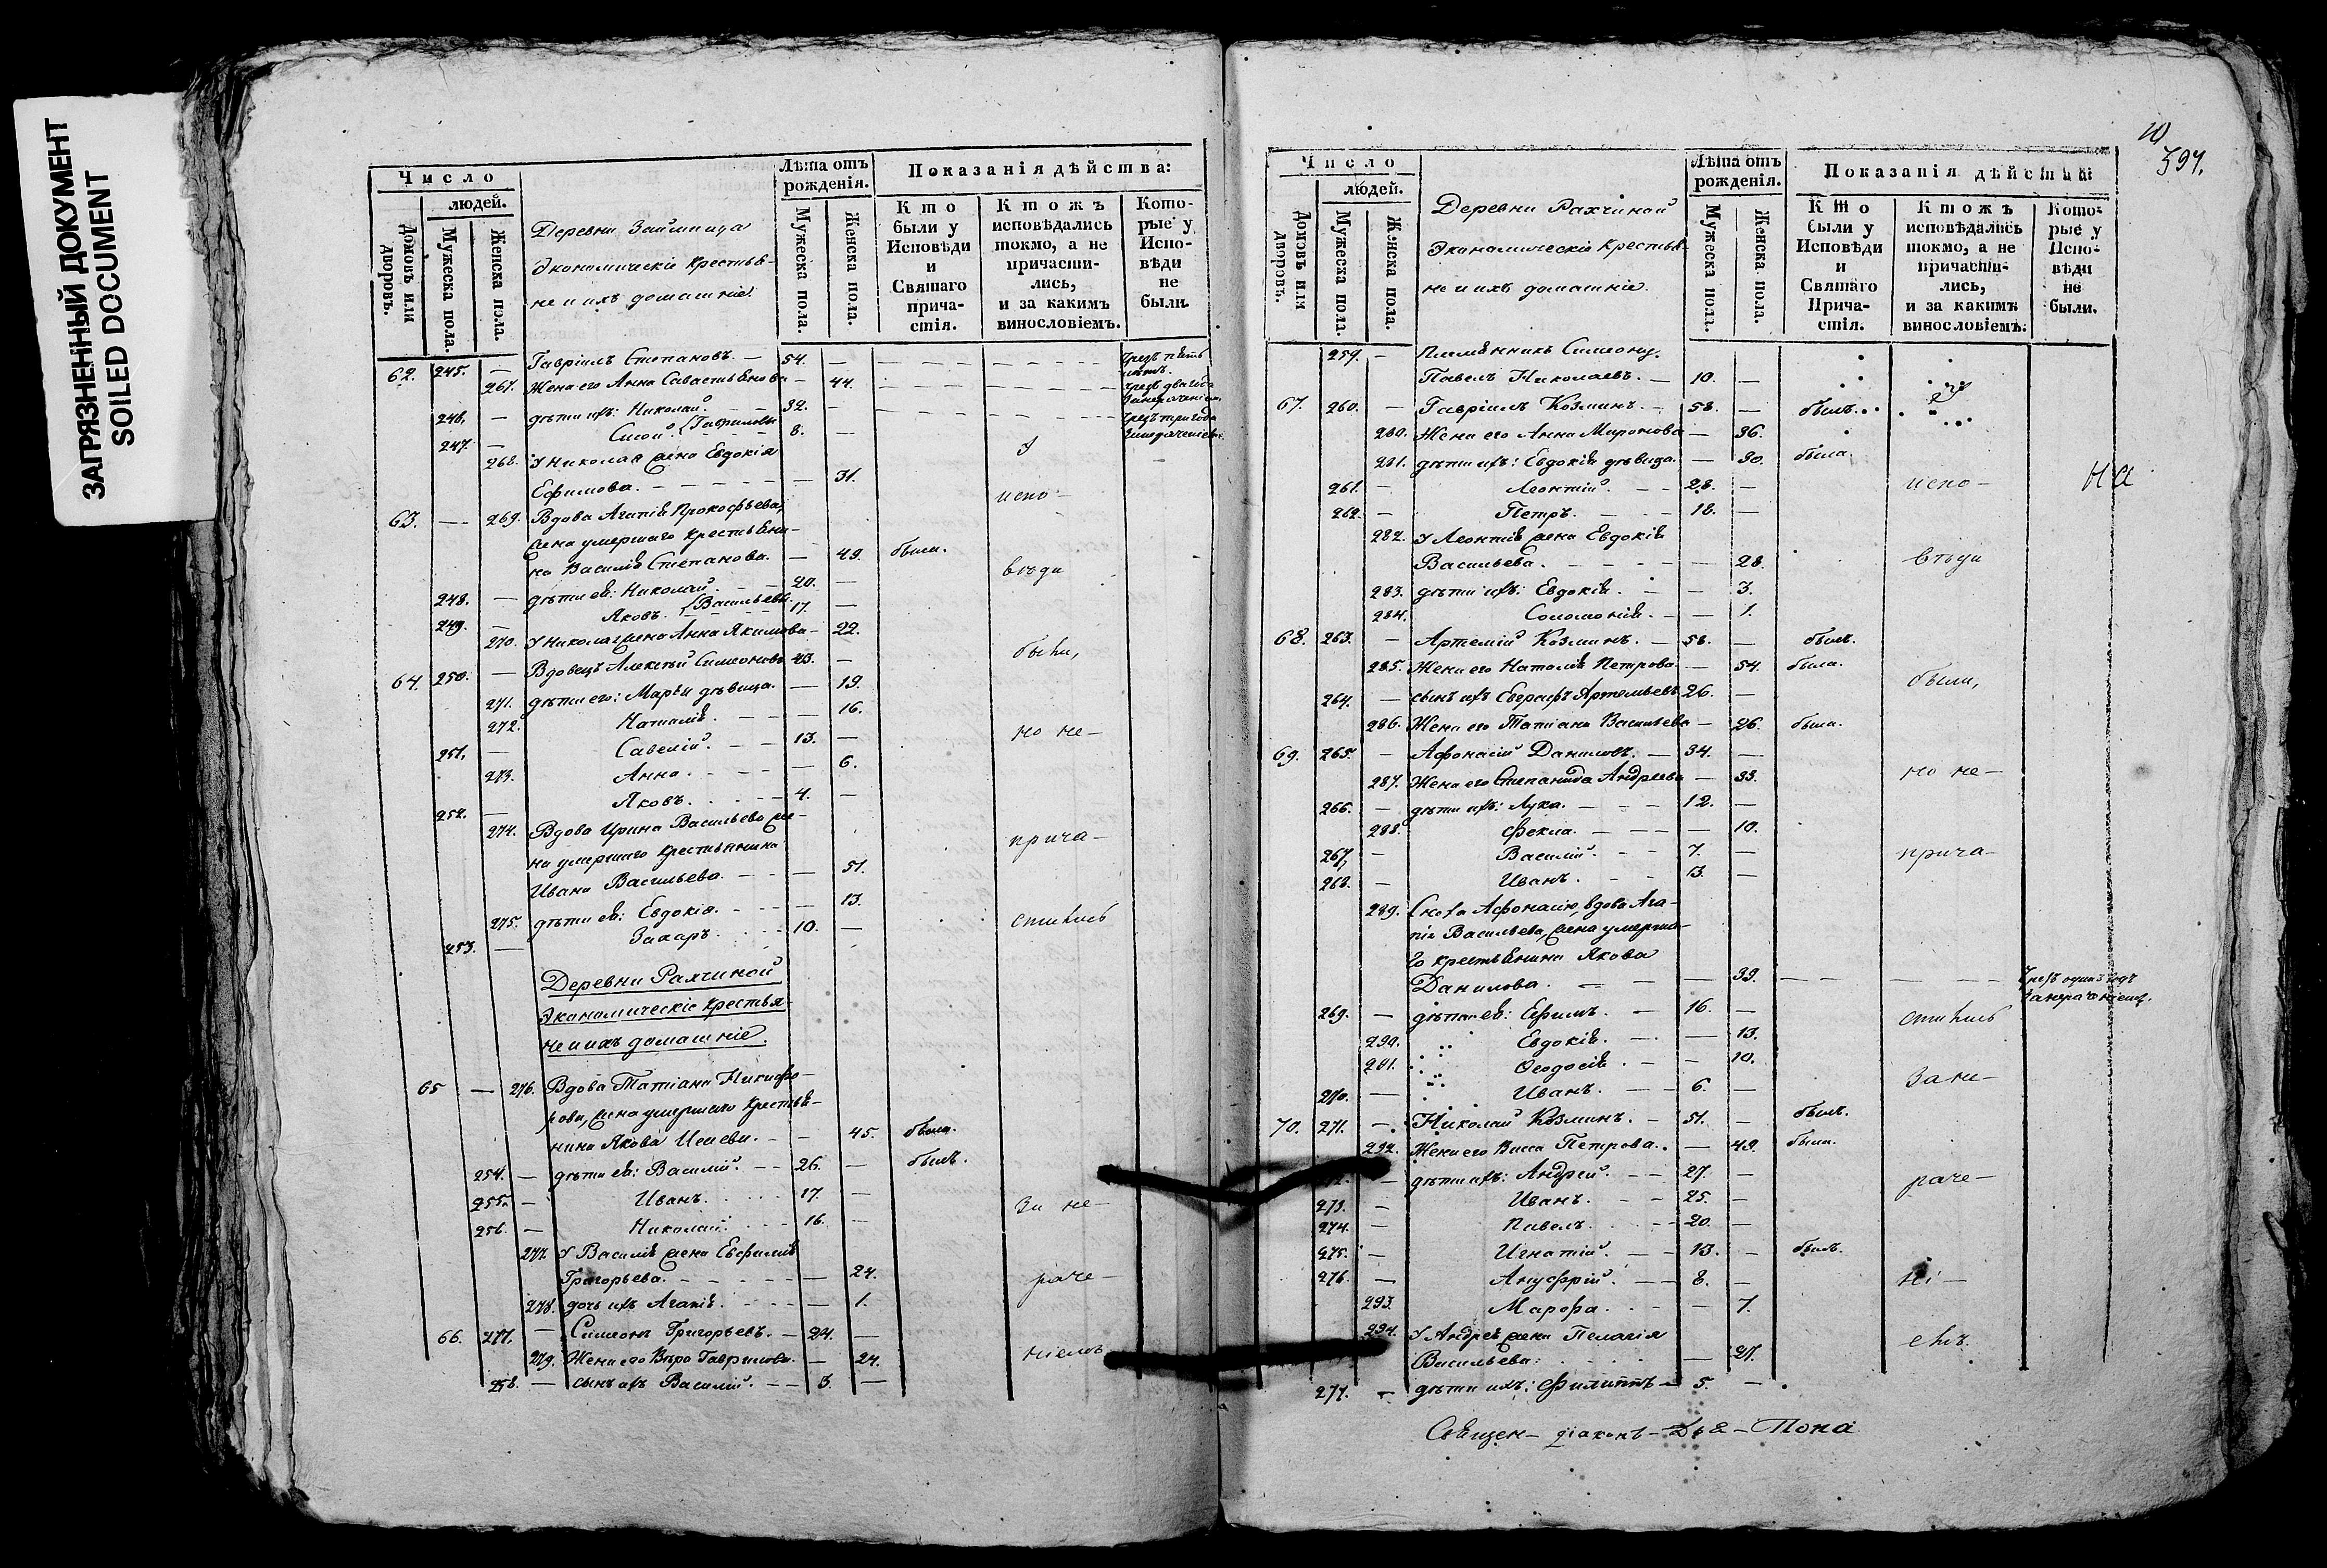 ЗАГРЯЗНЕННЫЙ ДОКУМЕНТ
SOILED DOCUMENT
Число
людей.
Домовъ или дворовъ.
Мужеска пола.
Женска пола.
Деревни
Экономическіе крестья-
не и ихъ домашніе.
Лѣта отъ рожденія.
Мужеска пола.
Женска пола.
Показанія дѣйства:
Кто были у Исповѣди и Святаго причастія.
Ктожъ исповѣдались токмо, а не причасти-лись, и за какимъ винословіемъ.
Кото-рые у Испо-вѣди не были.
62. 245. — Гавріилъ Степановъ. — 54. —
267. Жена его Анна Савастьянова — 44.
246. — дѣти ихъ: Николай. 32. —
247. — Гавриловы 8. —
268. У Николая жена Евдокія
Ефимова. — 31.
63. — 269. Вдова Агапія Прокофьева,
жена умершаго крестьяни-
на Василія Степанова. — 49. была.
248. — дѣти ея: Николай. 20. —
249. — Яковъ. Васильевы. 17. —
270. У Николая жена Анна Якимова — 22.
64. 250. — Вдовецъ Алексѣй Симеоновъ 43. —
271. дѣти его: Марѳа дѣвица. — 19.
272. Наталія. — 16.
251. — Савелій. 13. —
273. Анна. — 6.
252. — Яковъ. 4. —
274. Вдова Ирина Васильева же-
на умершаго крестьянина
Ивана Васильева. — 51.
275. дѣти ея: Евдокія. — 13.
253. — Захаръ. 10. —
Деревни Рахчиной
Экономическіе крестья-
не и ихъ домашніе.
65 — 276. Вдова Татіана Никифо-
рова, жена умершаго крестья-
нина Якова — 45. была.
254. — дѣти ея: Василій. 26. — былъ.
255. — Иванъ. 17. —
256. — Николай. 16. —
277. У Василія жена Евфимія
Григорьева. — 24.
278. дочь ихъ Агапія. — 1.
66. 257. — Симеонъ Григорьевъ. — 24. —
279. Жена его Вѣра Гаврилова. — 24.
258. — сынъ ихъ Василій. 3. —
У
испо-
вѣди
были,
но не-
прича-
стились
за не-
раче-
ніемъ
10
397.
Число
людей.
Домовъ или дворовъ.
Мужеска пола.
Женска пола.
Деревни Рахчиной
Экономическіе крестья-
не и ихъ домашніе.
Лѣта отъ рожденія.
Мужеска пола.
Женска пола.
Показанія дѣйства
Кто были у Исповѣди и Святаго Прича-стія.
Ктожъ исповѣдались токмо, а не причасти-лись, и за какимъ винословіемъ.
Кото-рые у Испо-вѣди не были.
259. — Племянникъ Симеону.
Павелъ Николаевъ. — 10. —
67. 260. — Гавріилъ Козминъ. — 58. — былъ.
280. Жена его Анна Миронова — 36.
281. дѣти ихъ: Евдокія дѣвица. — 30. была.
261. — Леонтій. 28. —
262. — Петръ. 18. —
282. У Леонтія жена Евдокія
Васильева. — 28.
283. дѣти ихъ: Евдокія. — 3.
284. Соломонія. — 1.
68. 263. — Артемій Козминъ. — 58. — былъ.
285. Жена его Наталія Петрова — 54. была.
264. — сынъ ихъ Евграфъ Артемьевъ 26. —
286. Жена его Татіана Васильева — 26. была.
69. 265. — Афонасій Даниловъ. — 34. —
287. Жена его Степанида Андреева — 33.
266. — дѣти ихъ: Лука. 12. —
288. Фекла. — 10.
267. — Василій. 7. —
268. — Иванъ. 3. —
289. Сноха Афонасію, вдова Ага-
пія Васильева, жена умерша-
го крестьянина Якова
Данилова. — 39.
269. — дѣти ея: Ефимъ. — 16. —
290. Евдокія. — 13.
291. Ѳеодосія. — 10.
270. — Иванъ. 6. —
70. 271. — Николай Козминъ. — 51. — былъ.
292. Жена его Васса Петрова. — 49. была.
— дѣти ихъ: Андрей. 27. —
273. — Иванъ. 25. —
274. — Павелъ. 20. —
275. — Игнатій. 13. — былъ.
276. — Ануфрій. 8. —
293. Марѳа. — 7.
294. У Андрея жена Пелагія
Васильева. — 27.
277. — дѣти ихъ: Филиппъ — 5. —
У
испо-
вѣди
были,
но не-
прича-
стились
за не-
раче-
ні-
емъ.
Чрезъ одинъ годъ
за нераченіемъ.
На
Священ- діаконъ- Попа